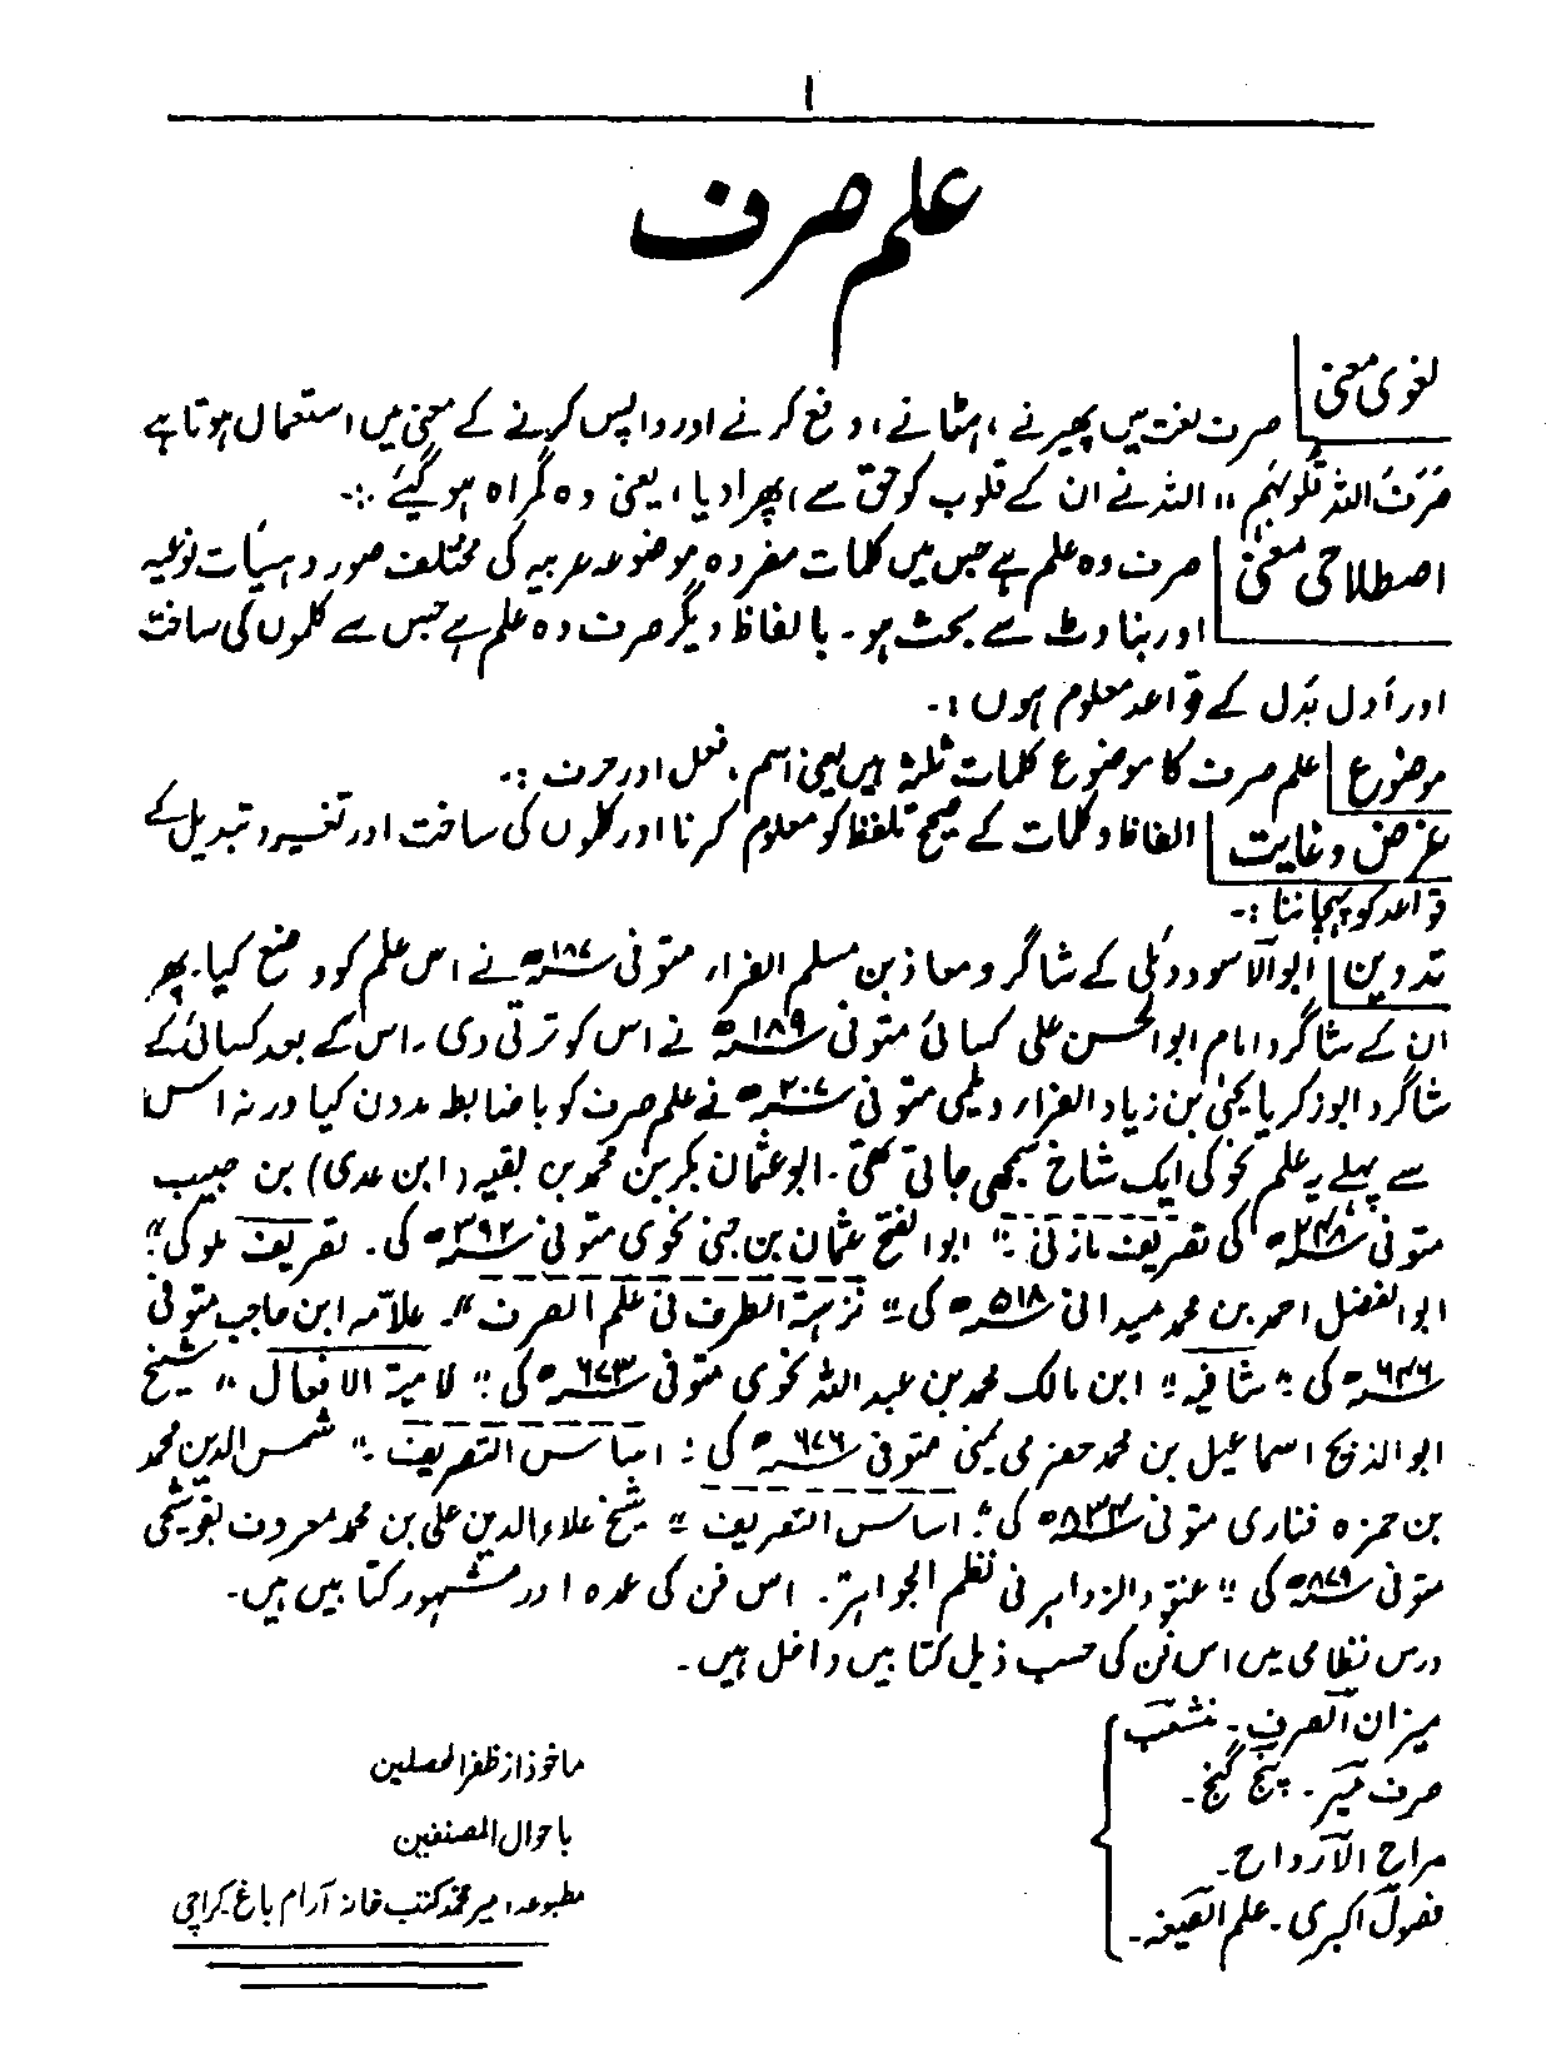 ۱
علم صرف
لغوی معنی
صرف لغت میں پھیرنے، ہٹانے، دفع کرنے اور واپس کرنے کے معنی میں استعمال ہوتا ہے
صَرَفَ اللہُ قُلُوبَہُم " اللہ نے ان کے قلوب کو حق سے، پھرا دیا، یعنی وہ گمراہ ہو گیئے :-
اصطلاحی معنیٰ صرف وہ علم ہے جس میں کلمات مفردہ موضوعہ عربیہ کی مختلف صور و ہیئات نوعیہ
اور بناوٹ سے بحث ہو۔ بالفاظ دیگر صرف وہ علم ہے جس سے کلموں کی ساخت
اور اَدل بَدل کے قواعد معلوم ہوں :-
موضوع علم صرف کا موضوع کلمات ثلٰثہ ہیں یعنی اسم، فعل اور حرف :-
غرض و غایت الفاظ و کلمات کے صحیح تلفظ کو معلوم کرنا اور کلموں کی ساخت اور تغییر و تبدیل کے
قواعد کو پہچاننا :-
تدوین ابوالاسود دؤلی کے شاگرد معاذ بن مسلم الفراء متوفی ۱۸۷ھ نے اس علم کو وضع کیا۔ پھر
ان کے شاگرد امام ابوالحسن علی کسائی متوفی ۱۸۹ھ نے اس کو ترقی دی۔ اس کے بعد کسائی کے
شاگرد ابوزکریا یحییٰ بن زیاد الفراء دیلمی متوفی ۲۰۷ھ نے علم صرف کو باضابطہ مدون کیا ورنہ اس
سے پہلے یہ علم نحو کی ایک شاخ سمجھی جاتی تھی۔ ابو عثمان بکر بن محمد بن بقیہ (ابن عدی) بن حبیب
متوفی ۲۴۸ھ کی تصریف مازنی۔" ابو الفتح عثمان بن جنی نحوی متوفی ۳۹۲ھ کی۔ تصریف ملوکی"
ابو الفضل احمد بن محمد میدانی ۵۱۸ھ کی " نزہۃ الطرف فی علم الصرف"۔ علامہ ابن حاجب متوفی
۶۴۶ھ کی " شافیہ " ابن مالک محمد بن عبد اللہ نحوی متوفی ۶۷۳ھ کی " لامیۃ الافعال " شیخ
ابو الذبیح اسماعیل بن محمد حضرمی یمنی متوفی ۶۷۶ھ کی : اساس التصریف۔" شمس الدین محمد
بن حمزہ فناری متوفی ۸۳۴ھ کی " اساس التصریف " شیخ علاء الدین علی بن محمد معروف بقوشجی
متوفی ۸۷۹ھ کی " عنقود الزواہر فی نظم الجواہر۔ اس فن کی عمدہ اور مشہور کتابیں ہیں۔
درس نظامی میں اس فن کی حسب ذیل کتابیں داخل ہیں۔
میزان الصرف۔ منشعب
صرف میر۔ پنج گنج۔
مراح الارواح۔
فصول اکبری۔ علم الصیغہ۔
ماخوذ از ظفر المحصلین
باحوال المصنفین
مطبوعہ، میر محمد کتب خانہ آرام باغ کراچی